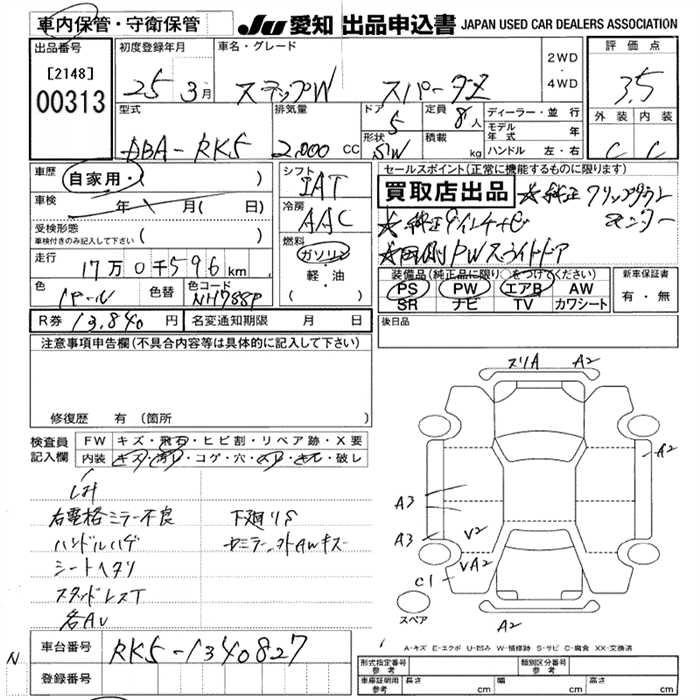 車内保管・守衛保管
JU 愛知 出品申込書 JAPAN USED CAR DEALERS ASSOCIATION
出品番号
[2148]
00313
初度登録年月
25 3月
車名・グレード
ステップW スパーダZ
2WD
・
4WD
評価点
3.5
外装 内装
C C
型式
DBA-RK5
排気量
2,000 cc
ドア
5
形状
SW
定員
8人
積載
kg
ディーラー・並行
モデル年式 年
ハンドル 左・右
車歴
自家用・( )
車検
年 月( 日)
受検形態
車検付きのみ記入して下さい ( )
走行
17万0千596km
色
パール
色替
色コード
NH788P
シフト
IAT
冷房
AAC
燃料
ガソリン
・
軽・油
( )
セールスポイント(正常に機能するものに限ります)
買取店出品
☆純正フリップダウン
モニター
☆純正ナビ
☆両側PWスライドドア
装備品(純正品に限り○をつけてください)
PS PW エアB AW
SR ナビ TV カワシート
新車保証書
有・無
R券 13,840円
名変通知期限 月 日
後日品
注意事項申告欄(不具合内容等は具体的に記入して下さい)
修復歴 有(箇所 )
検査員記入欄
FW キズ・飛石・ヒビ割・リペア跡・X要
内装 キズ・汚れ・コゲ・穴・スレ・キレ・破レ
右電格ミラー不良
ハンドルハゲ
シートヘタリ
スタッドレスT
各AU
下廻りS
ミラー、外AWキズ
スリA A2
A2
A3
A3
V2
VA2
C1
スペア
A2
A-キズ E-エクボ U-凹み W-補修跡 S-サビ C-腐食 XX-交換済
N
車台番号
RK5-1340827
登録番号
形式指定番号 参考
類別区分番号 参考
車庫証明用 参考
長さ cm
幅 cm
高さ cm